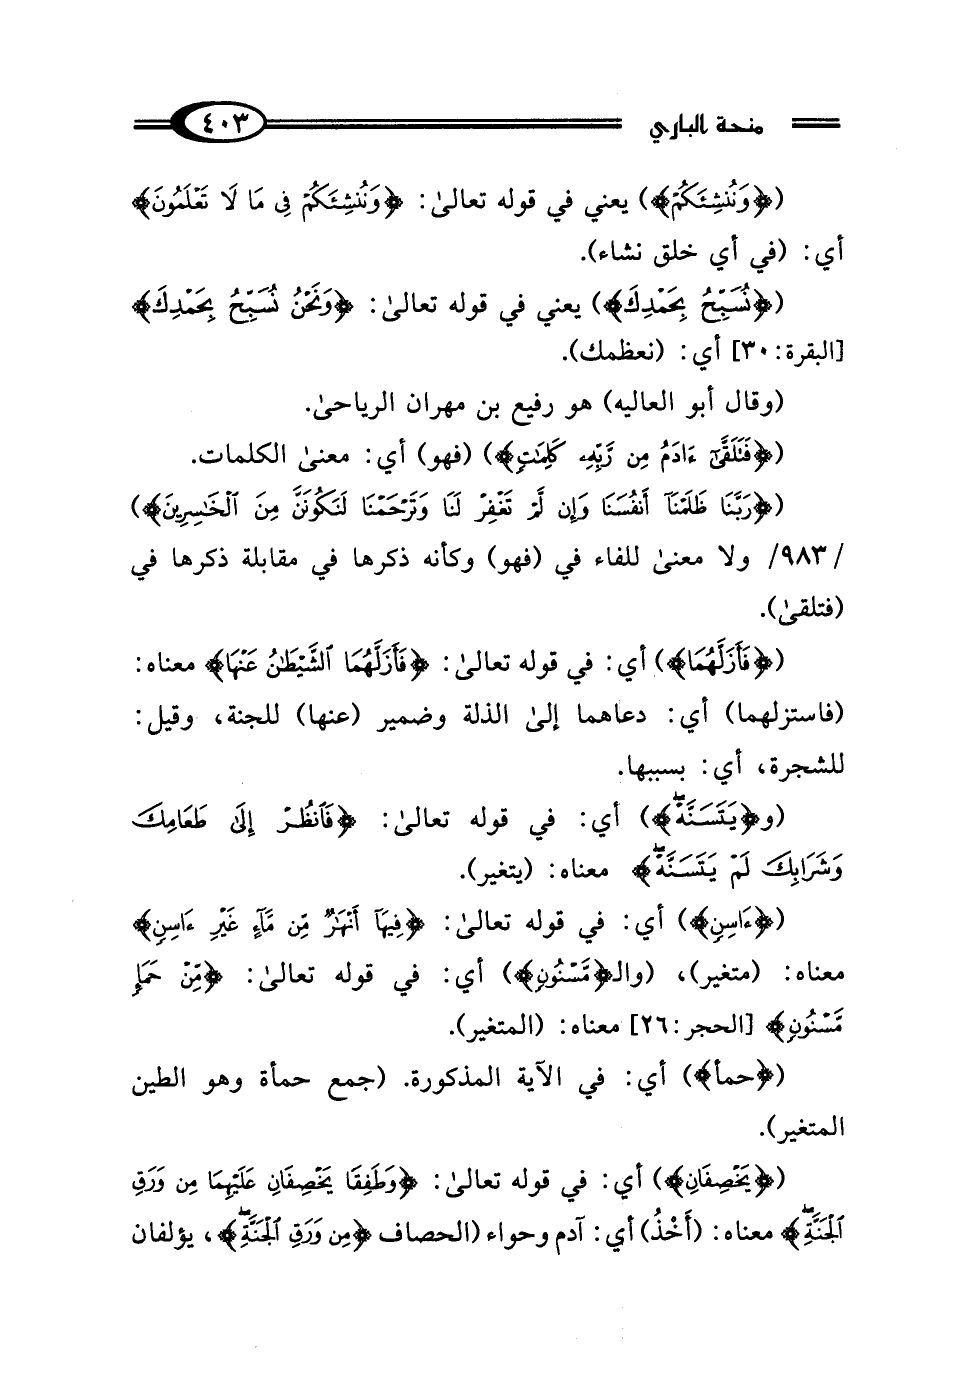 منحة الباري ٤٠٣
(﴿وَنُنشِئَكُمْ﴾) يعني في قوله تعالىٰ: ﴿وَنُنشِئَكُمْ فِي مَا لَا تَعْلَمُونَ﴾
أي: (في أي خلق نشاء).
(﴿نُسَبِّحُ بِحَمْدِكَ﴾) يعني في قوله تعالىٰ: ﴿وَنَحْنُ نُسَبِّحُ بِحَمْدِكَ﴾
[البقرة: ٣٠] أي: (نعظمك).
(وقال أبو العاليه) هو رفيع بن مهران الرياحىٰ.
(﴿فَتَلَقَّىٰٓ ءَادَمُ مِن رَّبِّهِۦ كَلِمَٰتٍ﴾) (فهو) أي: معنىٰ الكلمات.
(﴿رَبَّنَا ظَلَمْنَآ أَنفُسَنَا وَإِن لَّمْ تَغْفِرْ لَنَا وَتَرْحَمْنَا لَنَكُونَنَّ مِنَ ٱلْخَٰسِرِينَ﴾)
/٩٨٣/ ولا معنىٰ للفاء في (فهو) وكأنه ذكرها في مقابلة ذكرها في
(فتلقىٰ).
(﴿فَأَزَلَّهُمَا﴾) أي: في قوله تعالىٰ: ﴿فَأَزَلَّهُمَا ٱلشَّيْطَٰنُ عَنْهَا﴾ معناه:
(فاستزلهما) أي: دعاهما إلىٰ الذلة وضمير (عنها) للجنة، وقيل:
للشجرة، أي: بسببها.
(و﴿يَتَسَنَّهْۖ﴾) أي: في قوله تعالىٰ: ﴿فَٱنظُرْ إِلَىٰ طَعَامِكَ
وَشَرَابِكَ لَمْ يَتَسَنَّهْۖ﴾ معناه: (يتغير).
(﴿ءَاسِنٍ﴾) أي: في قوله تعالىٰ: ﴿فِيهَآ أَنْهَٰرٌ مِّن مَّآءٍ غَيْرِ ءَاسِنٍ﴾
معناه: (متغير)، (والـ﴿مَّسْنُونٍ﴾) أي: في قوله تعالىٰ: ﴿مِّنْ حَمَإٍ
مَّسْنُونٍ﴾ [الحجر: ٢٦] معناه: (المتغير).
(﴿حمأ﴾) أي: في الآية المذكورة. (جمع حمأة وهو الطين
المتغير).
(﴿يَخْصِفَانِ﴾) أي: في قوله تعالىٰ: ﴿وَطَفِقَا يَخْصِفَانِ عَلَيْهِمَا مِن وَرَقِ
ٱلْجَنَّةِۖ﴾ معناه: (أَخْذُ) أي: آدم وحواء (الحصاف ﴿مِن وَرَقِ ٱلْجَنَّةِۖ﴾، يؤلفان